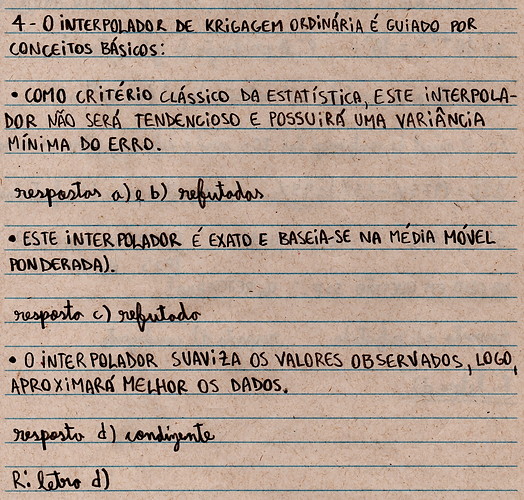 4 - O INTERPOLADOR DE KRIGAGEM ORDINÁRIA É GUIADO POR
CONCEITOS BÁSICOS:
• COMO CRITÉRIO CLÁSSICO DA ESTATÍSTICA, ESTE INTERPOLA-
DOR NÃO SERÁ TENDENCIOSO E POSSUIRÁ UMA VARIÂNCIA
MÍNIMA DO ERRO.
respostas a) e b) refutadas
• ESTE INTERPOLADOR É EXATO E BASEIA-SE NA MÉDIA MÓVEL
PONDERADA).
resposta c) refutada
• O INTERPOLADOR SUAVIZA OS VALORES OBSERVADOS, LOGO,
APROXIMARÁ MELHOR OS DADOS.
resposta d) condizente
R: letra d)